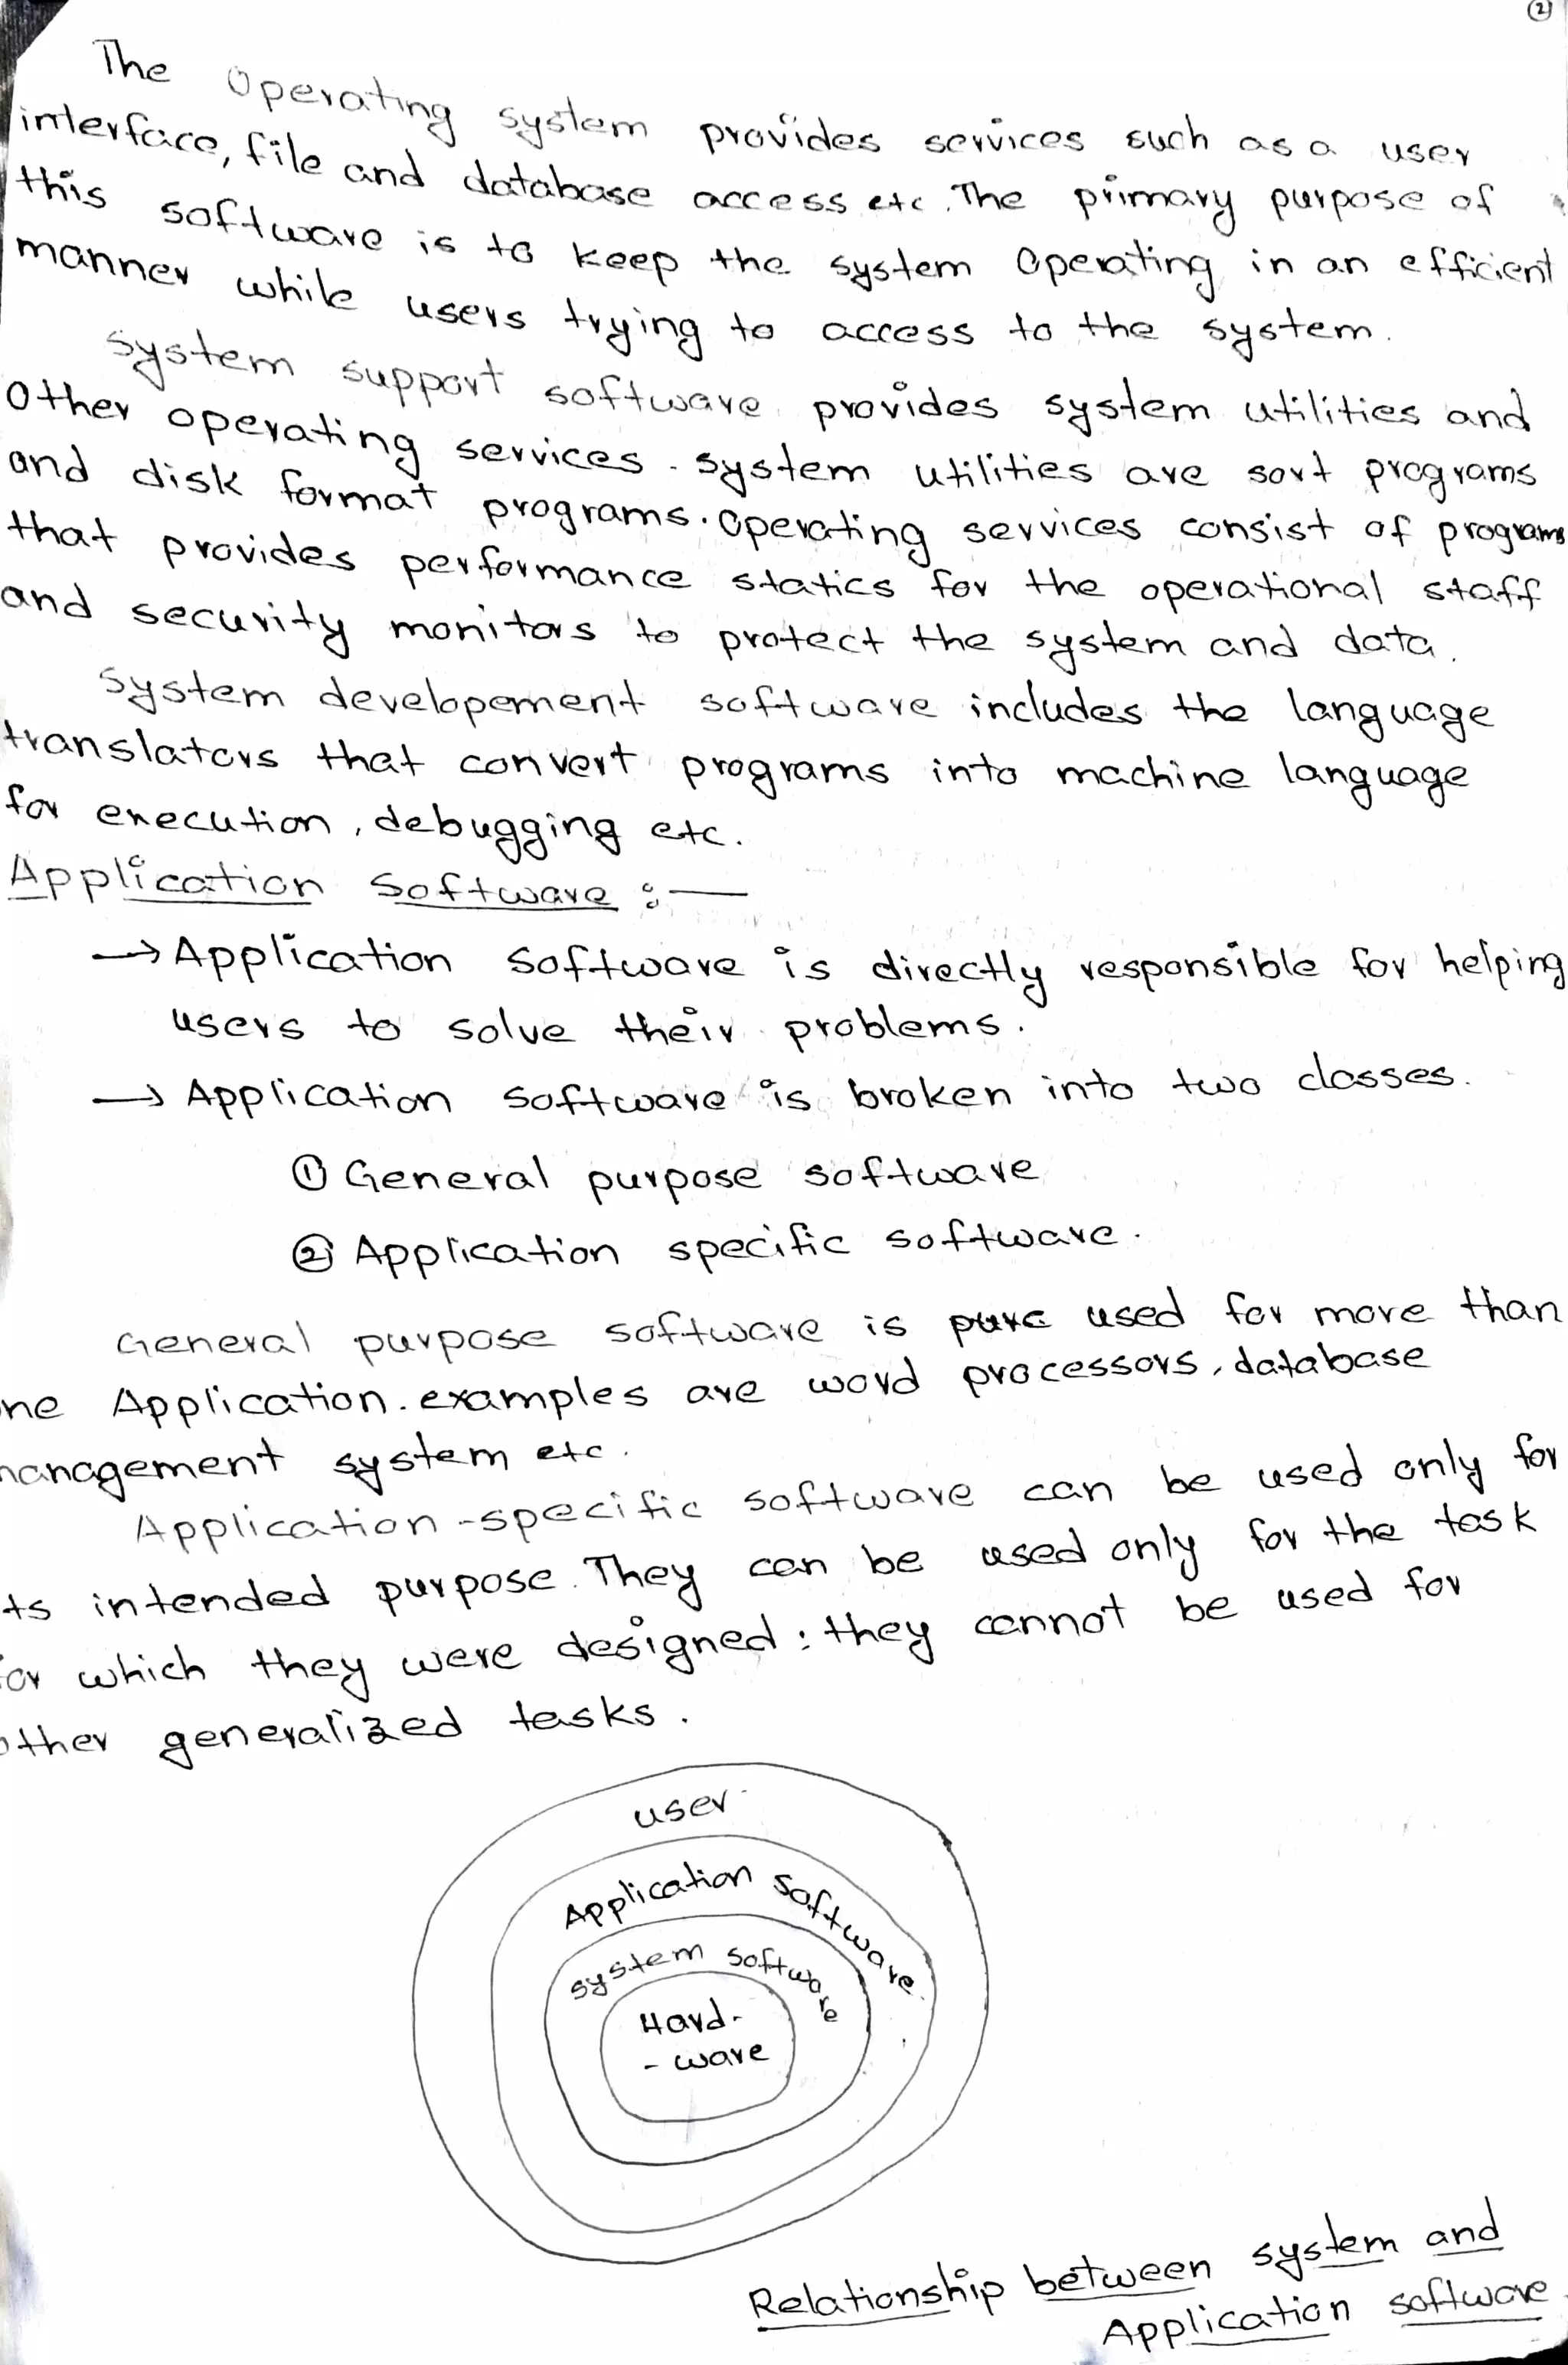 ②
The Operating system provides services such as a user
interface, file and database access etc. The primary purpose of
this software is to keep the system Operating in an efficient
manner while users trying to access to the system.
System support software provides system utilities and
Other operating services. System utilities are sort programs
and disk format programs. Operating services consist of programs
that provides performance statics for the operational staff
and security monitors to protect the system and data.
System developement software includes the language
translators that convert programs into machine language
for execution, debugging etc.
Application Software :—
→ Application Software is directly responsible for helping
users to solve their problems.
→ Application Software is broken into two classes.
① General purpose software
② Application specific software.
General purpose software is pure used for more than
ne Application. examples are word processors, database
management system etc.
Application-specific software can be used only for
ts intended purpose. They can be used only for the task
for which they were designed: they cannot be used for
other generalized tasks.
user
Application Software
System Software
Hard-
- ware
Relationship between system and
Application software